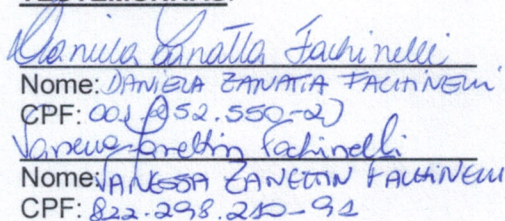 TESTEMUNHAS:
Daniela Zanatta Fachinelli
Nome: DANIELA ZANATTA FACHINELLI
CPF:
Vanessa Zanettin Fachinelli
Nome: VANESSA ZANETTIN FACHINELLI
CPF: 822.298.210-91